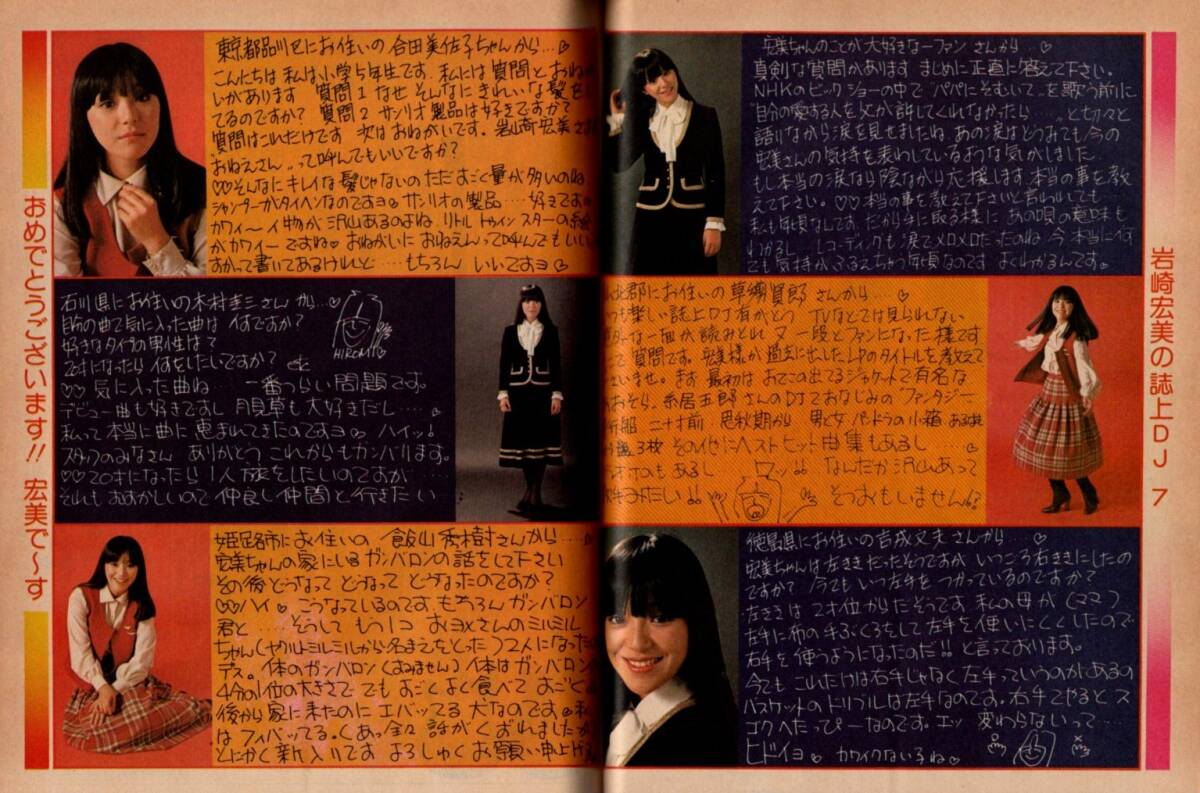 岩崎宏美の誌上DJ 7
おめでとうございます!! 宏美で〜す
東京都品川区にお住いの 合田美佐子ちゃんから…♡
こんにちは 私は小学5年生です、私には質問とおねが
いがあります 質問1 なぜ そんなにきれいな髪を
てるのですか? 質問2 サンリオ製品は好きですか?
質問はこれだけです 次はおねがいです。岩崎宏美さま
おねえさん、って呼んでもいいですか?
♡♡そんなにキレイな髪じゃないの ただすごく量が多いのね
シャンプーがタイヘンなのですヨ。サンリオの製品……好きですの
カワイ〜イ物が沢山あるのよね リトルトゥインスターの絵
がカワイーですね♡ おねがいに おねえさんって呼んでもいい
ですかって書いてあるけれど… もちろん いいですヨ♡
宏美ちゃんのことが大好きな一ファン さんから…♡
真剣な質問があります まじめに正直に答えて下さい。
NHKのビッグショーの中で "パパにそむいて"を歌う前に
自分の愛する人を父が許してくれなかったら…と切々と
語りながら涙を見せましたね あの涙はどうみても今の
宏美さんの気持を表わしているような気がしました
もし本当の涙なら陰ながら応援します。本当の事を教
えて下さい。♡♡本当の事を教えて下さいと言われても
私も年頃なんです。だから手に取る様に あの唄の意味も
わかるし… レコーディングも涙でメロメロだったのね 今 本当に何
でも気持がふるえちゃう年頃なのです よくわかるんです。
石川県にお住いの木村圭三さんから…♡
自分の曲で気に入った曲は 何ですか?
好きなタイプの男性は?
20才になったら何をしたいですか?
HIROMI♡
♡♡ 気に入った曲ね… 一番つらい問題です。
デビュー曲も好きですし 月見草も大好きだし……
私って本当に曲に恵まれてきたのですヨ♡ ハイッ!
スタッフのみなさん ありがとう これからもガンバリます。
♡♡20才になったら 1人旅をしたいのですが
それもむずかしいので 仲良し仲間と行きたい
郡にお住いの草 賢郎 さんから…♡
つも楽しい誌上DJ有がとう TVなどでは見られない
一面が読みとれ 又 一段とファンになった様です
て質問です。宏美様が過去に出したLPのタイトルを教えて
さいませ。まず最初は おでこの出てるジャケットで有名な
あおぞら、糸居五郎さんのDJでおなじみの ファンタジー
二十才前 思秋期から 男と女 パンドラの小箱
3枚 その他にベストヒット曲集もあるし
もあるし ワッ!! なんだか沢山あって
みたい!! そうおもいません!?
姫路市にお住いの 飯山秀樹さんから…
宏美ちゃんの家にいるガンバロンの話をして下さい
その後どうなって どうなって どうなったのですか?
♡♡ハイ♡ こうなっているのです。もちろん ガンバロン
君と… そうして もう1コ およめさんのミルミル
ちゃん(ヤクルトミルミルから名まえをとった)2人になった
デス。体のガンバロン(すみません)体はガンバロン
4分の1位の大きさで でも すごくよく食べて すごく
後から家に来たのに エバッてる 犬なのです♡
はフィバッてる。くあっ 全々 話がくずれましたが
とにかく 新入りです よろしゅくお願い申上げ
徳島県にお住いの吉成文夫さんから…♡
宏美ちゃんは左ききだったそうですが いつごろ右ききにしたの
ですか? 今でもいつ左手をつかっているのですか?
左ききは 2才位からだそうです 私の母が(ママ)
左手に布の手ぶくろをして左手を使いにくくしたので
右手を使うようになったのだ!! と言っております。
今でも これだけは右手じゃなく 左手っていうのがあるの
バスケットのドリブルは左手なのです。右手でやるとス
ゴクヘたっぴーなのです。エッ 変わらないって…
ヒドイョ。 カワイクない子ね♡